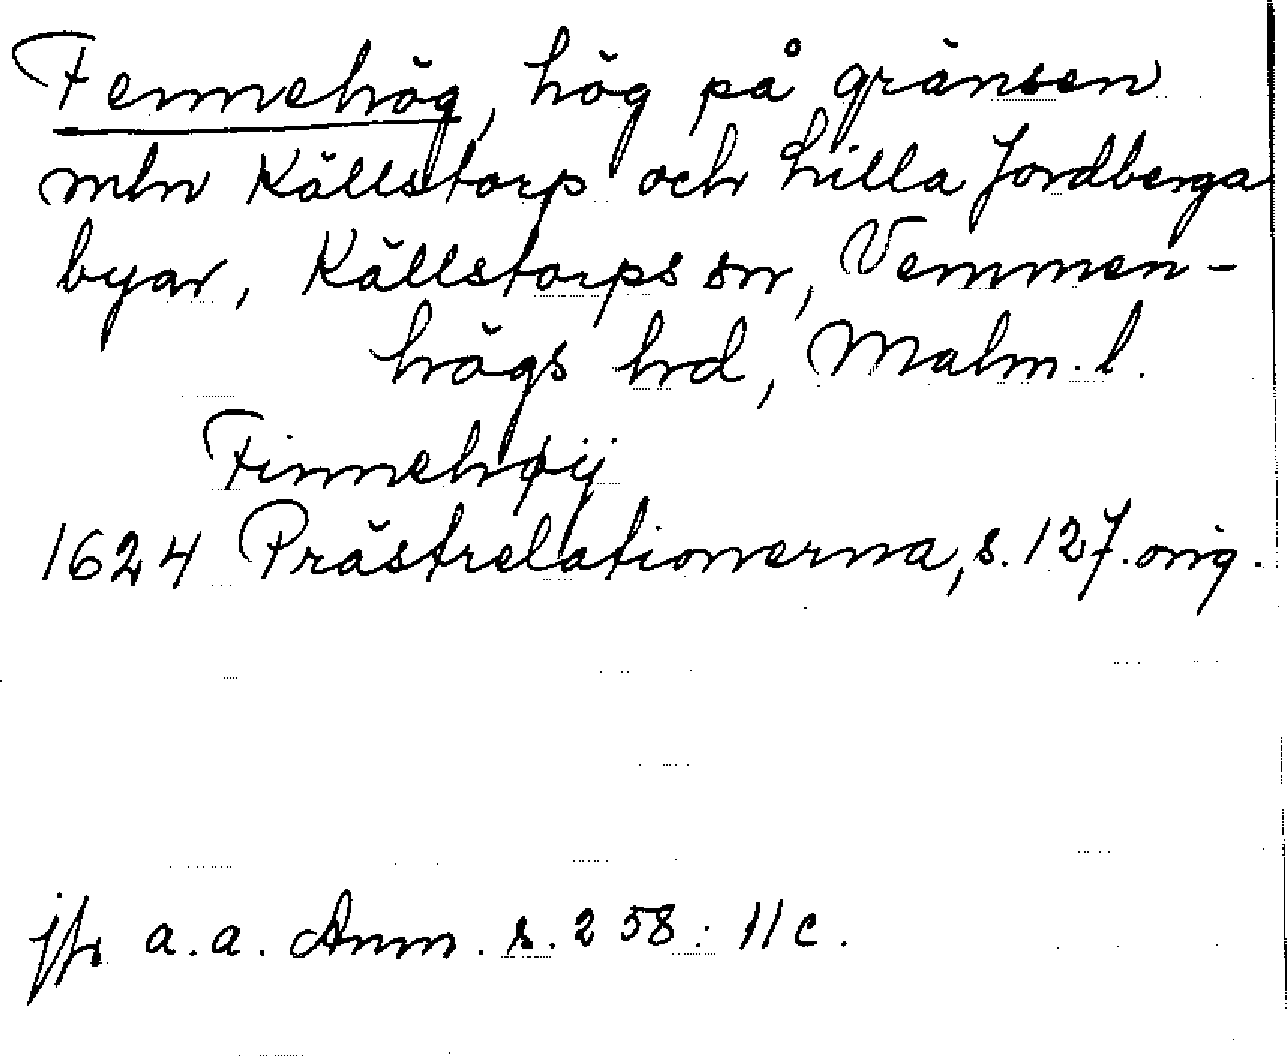 Fennehög, hög på gränsen
mln Källstorp och Lilla Jordberga
byar, Källstorps sn, Vemmen-
högs hd, Malm. l.
Finnehøÿ
1624 Prästrelationerna, s. 127. orig.
jfr a. a. Anm. s. 258: 11c.